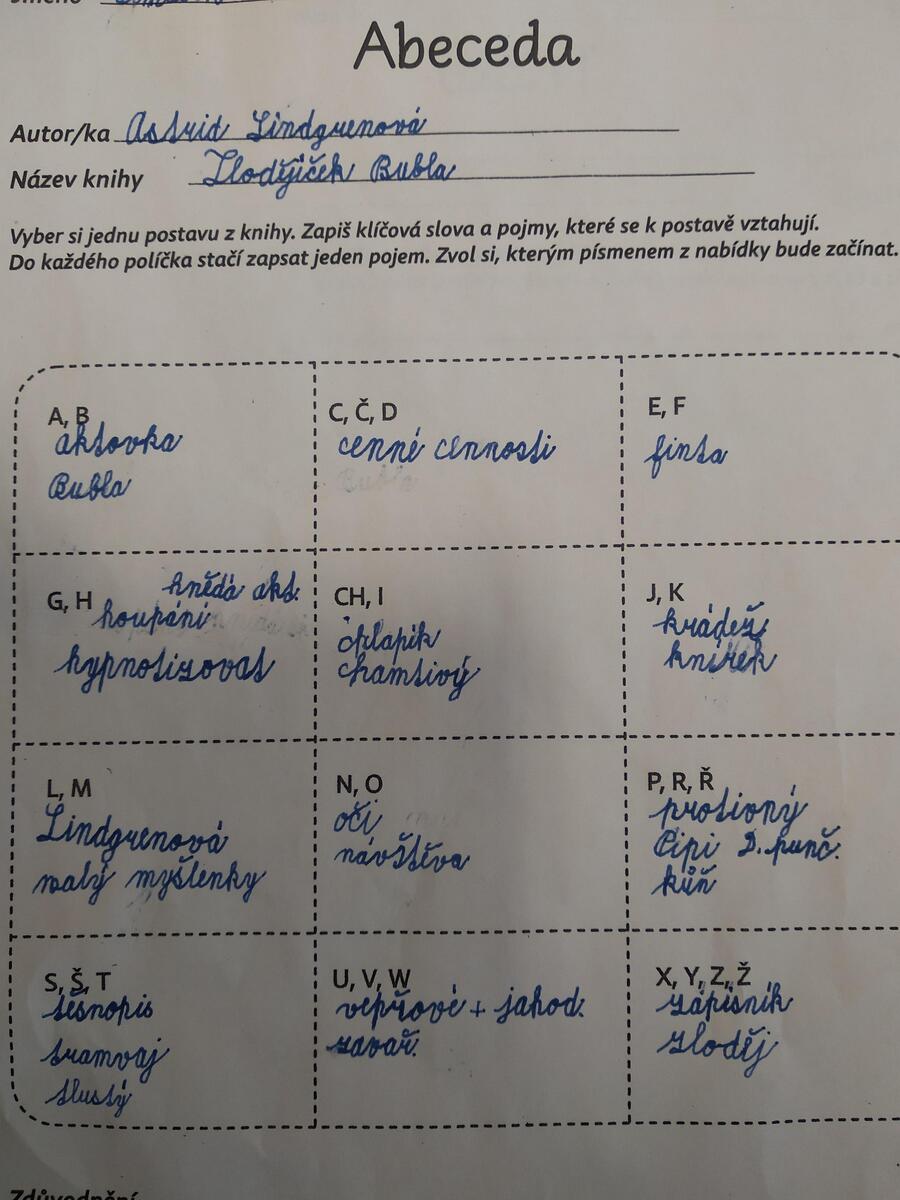 Jméno
Abeceda
Autor/ka Astrid Lindgrenová
Název knihy Zlodějíček Bubla
Vyber si jednu postavu z knihy. Zapiš klíčová slova a pojmy, které se k postavě vztahují.
Do každého políčka stačí zapsat jeden pojem. Zvol si, kterým písmenem z nabídky bude začínat.
A, B
aktovka
Bubla
C, Č, D
cenné cennosti
Bubla
E, F
finta
hnědá akt.
G, H houpání
hypnotizovat
CH, I
chlapík
chamtivý
J, K
krádež
knírek
L, M
Lindgrenová
malý myšlenky
N, O
oči
návštěva
P, R, Ř
protivný
Pipi D. punč.
kůň
S, Š, T
těsnopis
tramvaj
tlustý
U, V, W
vepřové + jahod.
zavař.
X, Y, Z, Ž
zápisník
zloděj
Zdůvodnění